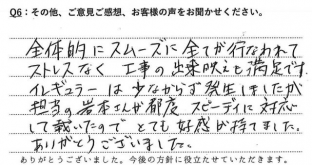 Q6：その他、ご意見ご感想、お客様の声をお聞かせください。
全体的にスムーズに全てが行なわれて
ストレスなく 工事の出来映えも満足です。
イレギュラーは少なからず発生しましたが
担当の岩本さんが都度 スピーディに対応
して戴いたので とても好感が持てました。
ありがとうございました。
ありがとうございました。今後の方針に役立たせていただきます。